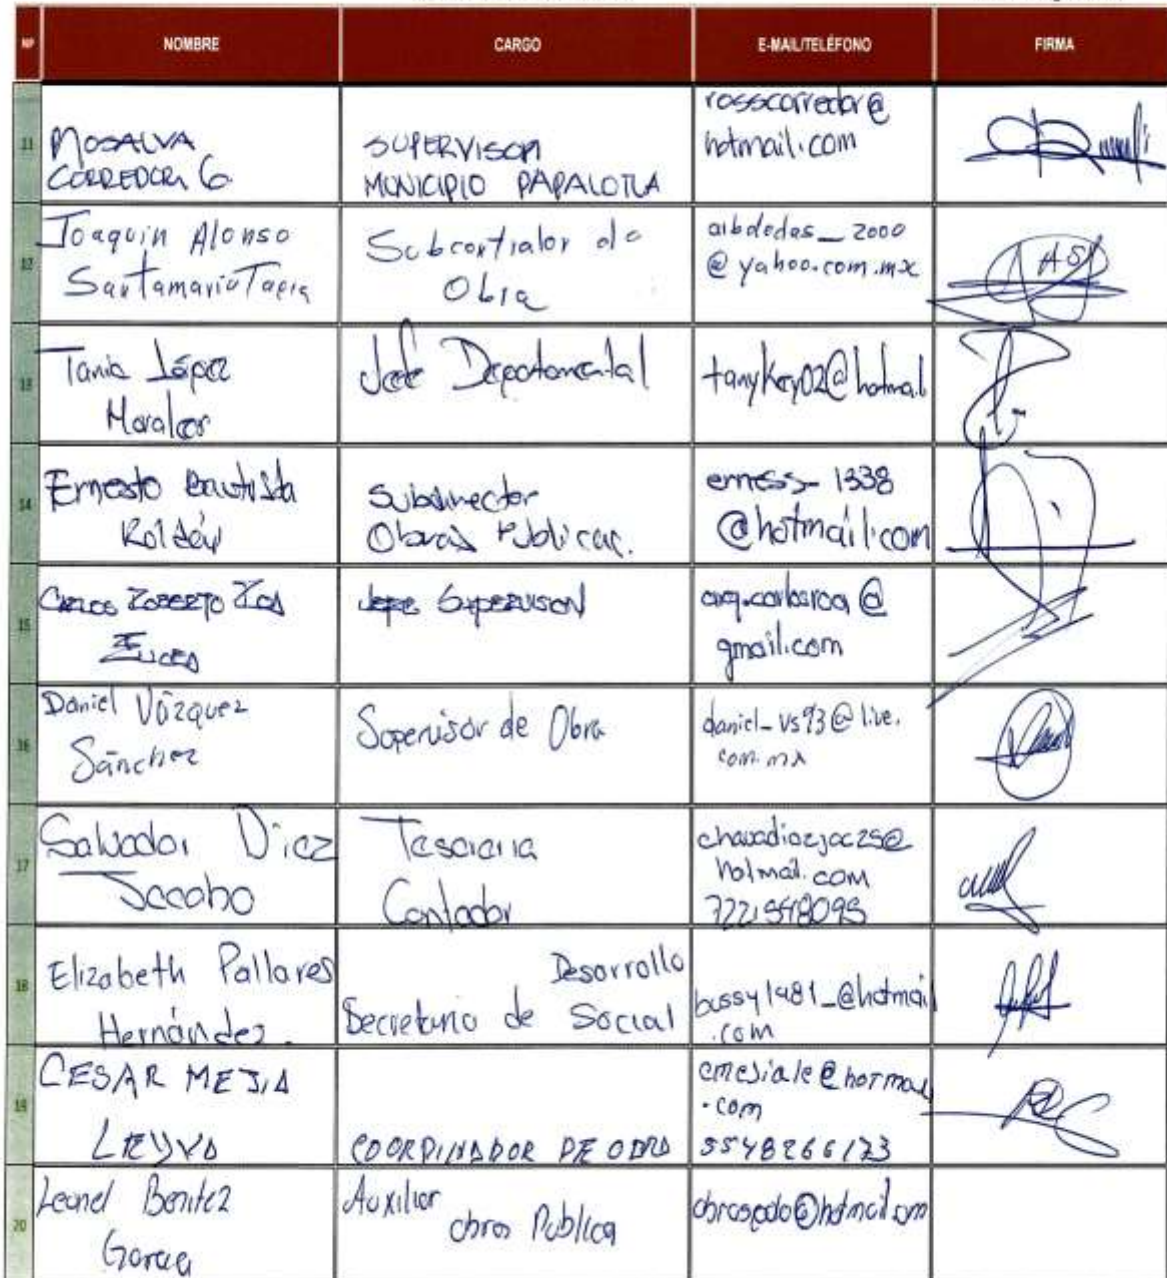 NP NOMBRE CARGO E-MAIL/TELÉFONO FIRMA
11
ROSALVA
CORREDOR G.
SUPERVISOR
MUNICIPIO PAPALOTLA
rosscorredor@
hotmail.com
12
Joaquin Alonso
Santamaria Tapia
Subcontralor de
Obra
@yahoo.com.mx
13
Tania López
Morales
Jefe Departamental
tanykey02@hotmail
14
Ernesto Bautista
Roldán
Subdirector
Obras Publicas.
erness_1338
@hotmail.com
15
CARLOS ROBERTO ROA
JEFE SUPERVISION
arq.carlosroa@
gmail.com
16
Daniel Vázquez
Sánchez
Supervisor de Obra
daniel_vs93@live.
com.mx
17
Salvador Diaz
Jacobo
Tesoreria
Contador
chavadiazjac25@
hotmail.com
7221548095
18
Elizabeth Pallares
Hernández.
Desarrollo
Secretario de Social
bussy1481_@hotmai
.com
19
CESAR MEJIA
LEYVA
COORDINADOR DE OBRA
cmejiale@hotmail
.com
5548266123
20
Leonel Benitez
Garcia
Auxiliar
obras Publica